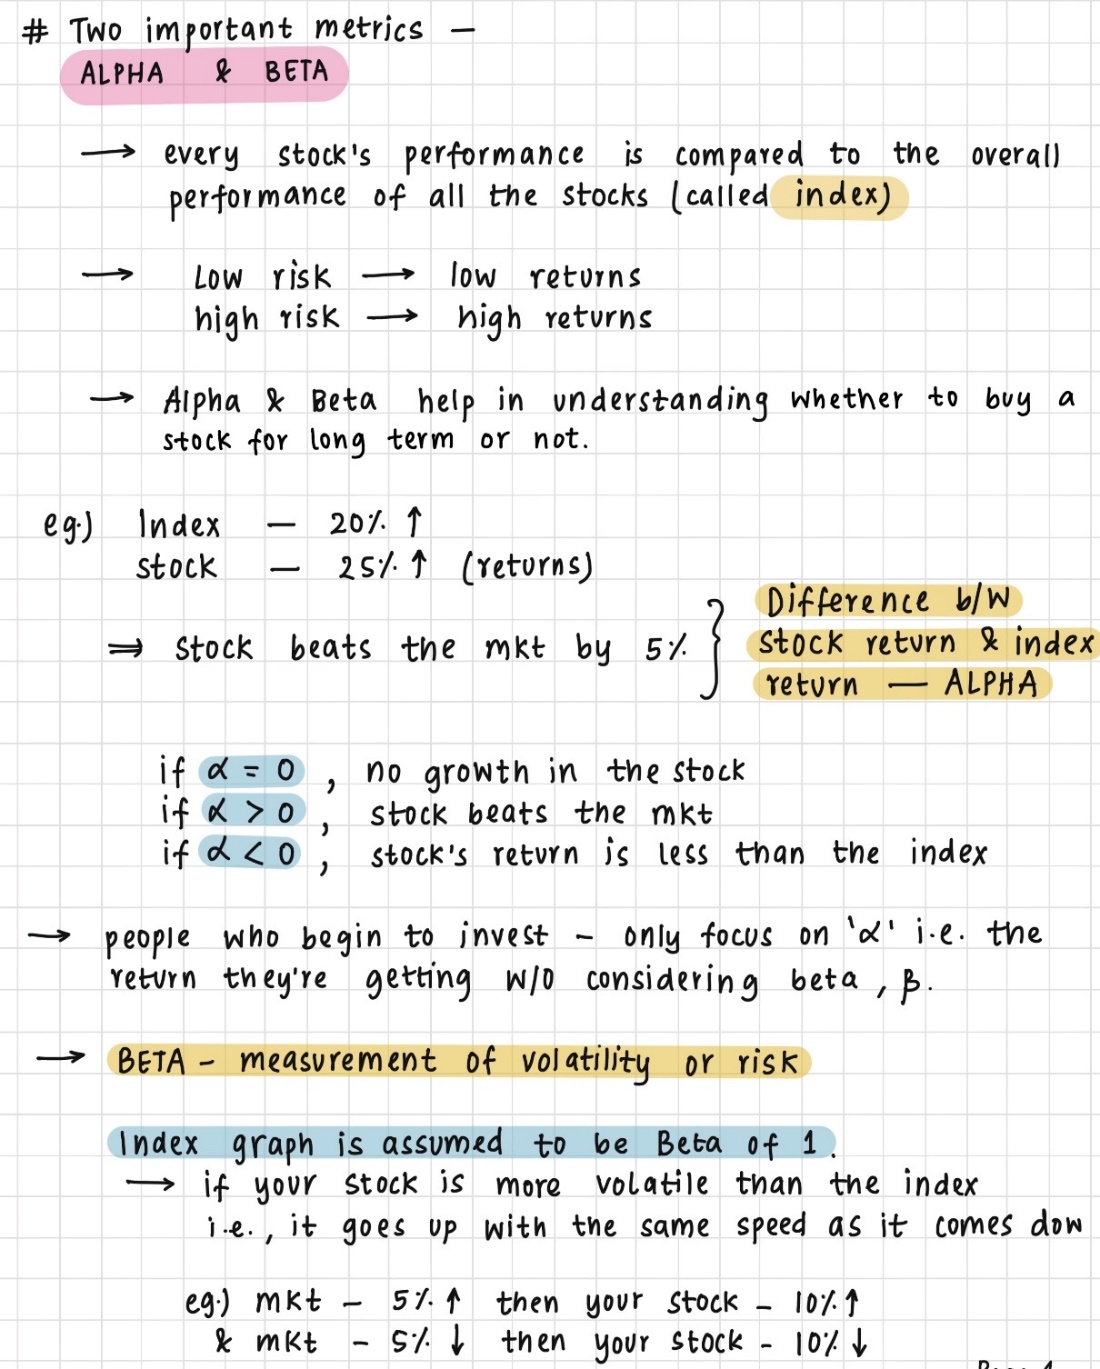 # Two important metrics —
ALPHA & BETA
→ every stock's performance is compared to the overall
performance of all the stocks (called index)
→ Low risk → low returns
high risk → high returns
→ Alpha & Beta help in understanding whether to buy a
stock for long term or not.
eg.) Index — 20% ↑
stock — 25% ↑ (returns)
⇒ Stock beats the mkt by 5% } Difference b/w
stock return & index
return — ALPHA
if α = 0 , no growth in the stock
if α > 0 , stock beats the mkt
if α < 0 , stock's return is less than the index
→ people who begin to invest - only focus on 'α' i.e. the
return they're getting w/o considering beta , β.
→ BETA - measurement of volatility or risk
Index graph is assumed to be Beta of 1.
→ if your stock is more volatile than the index
i.e., it goes up with the same speed as it comes dow
eg.) mkt - 5% ↑ then your stock - 10% ↑
& mkt - 5% ↓ then your stock - 10% ↓